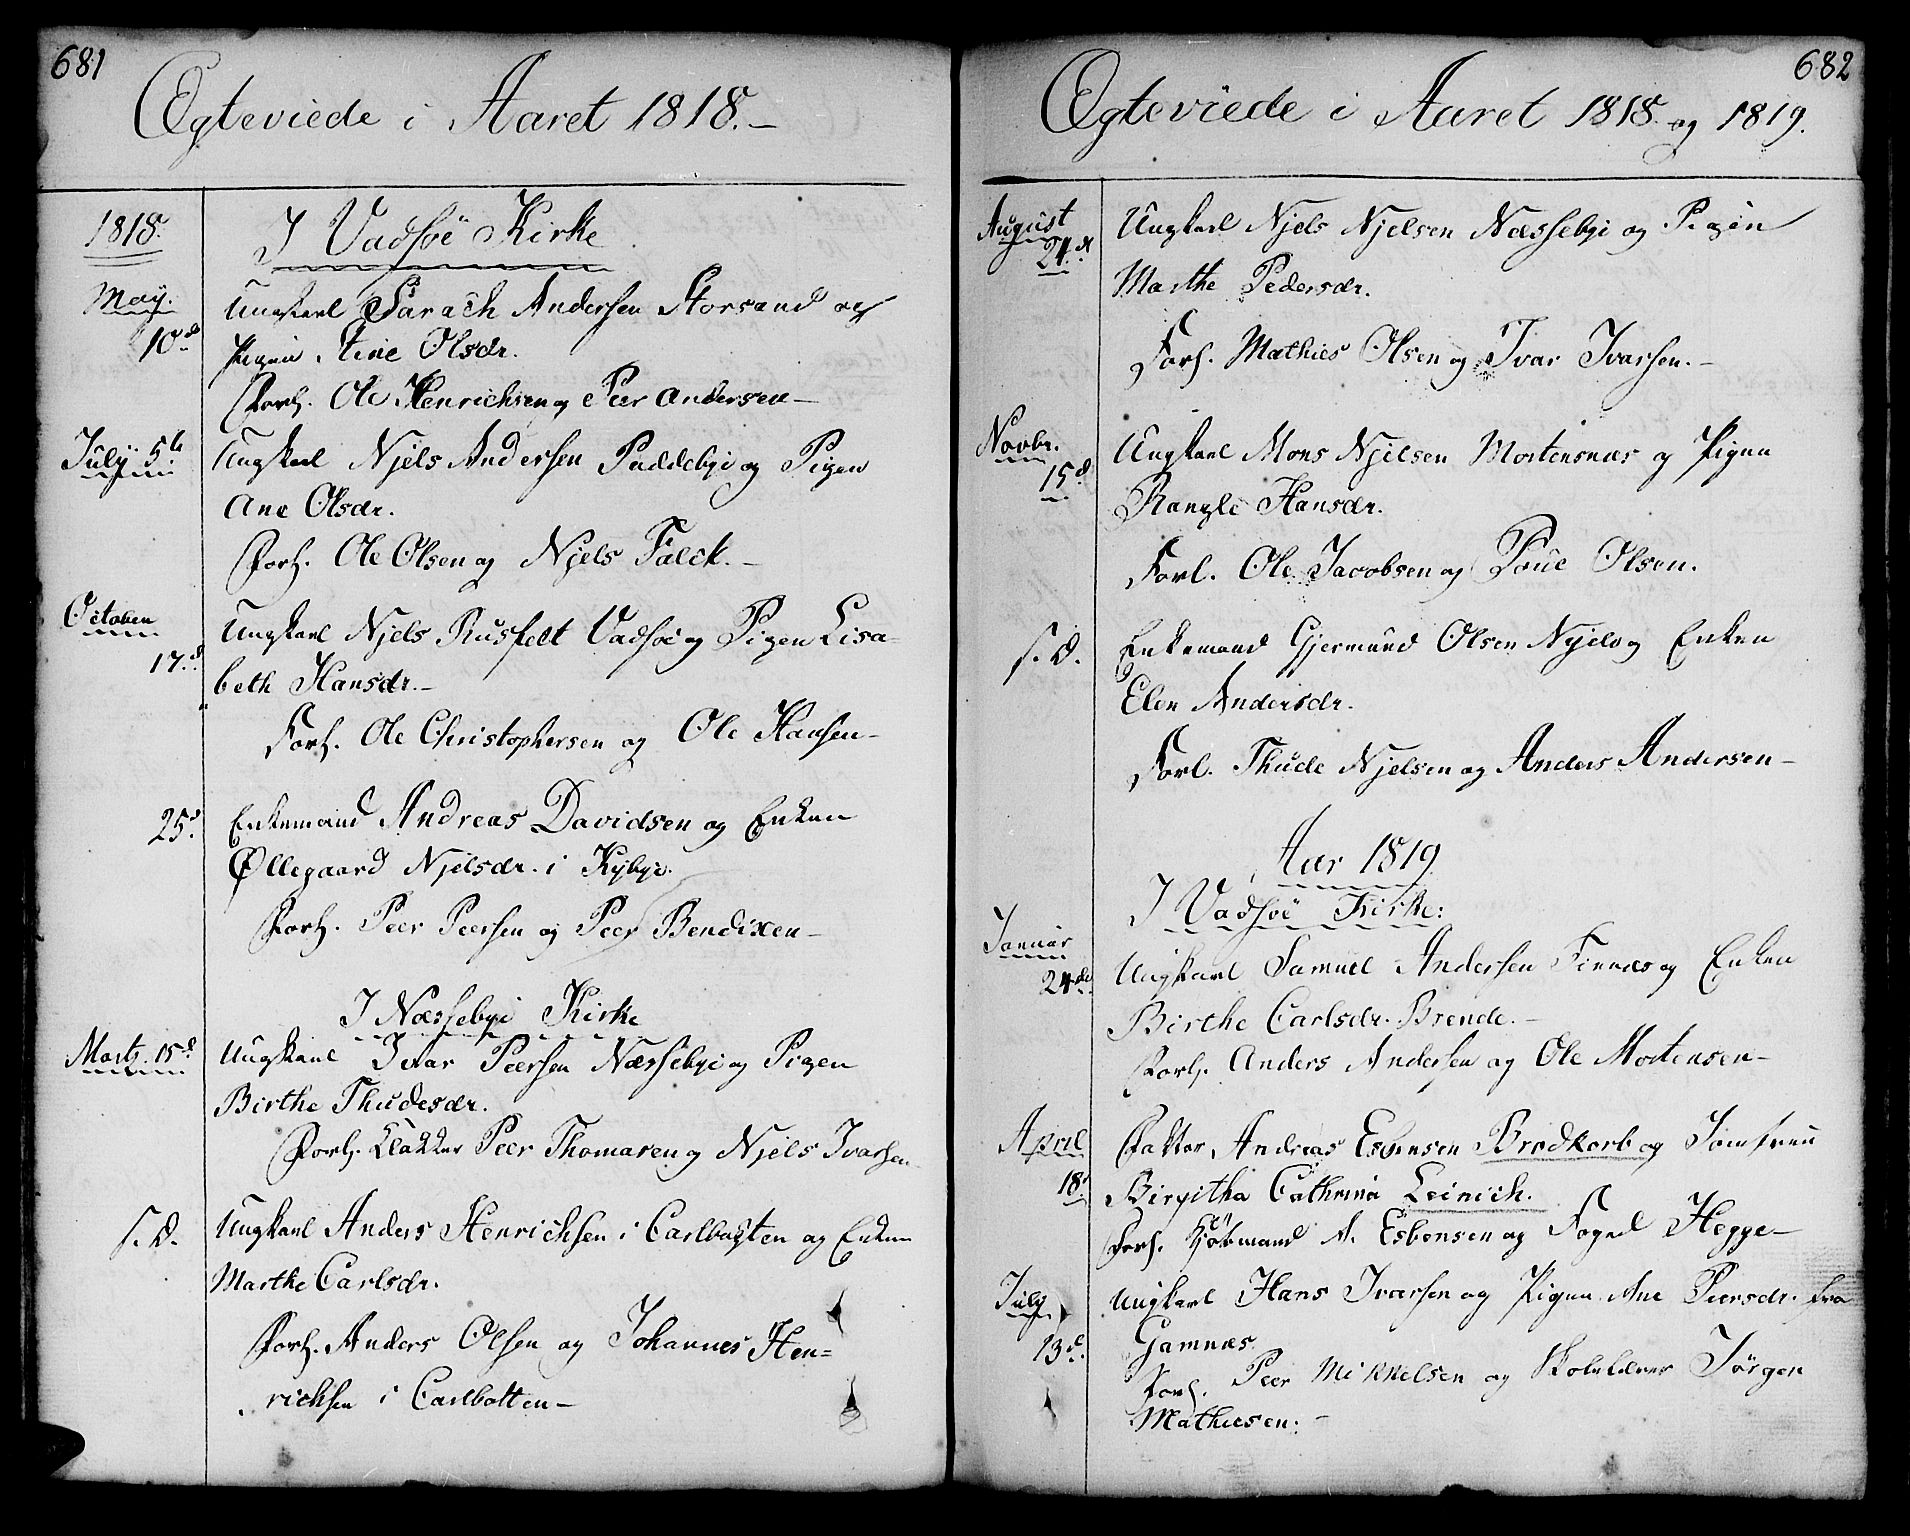 681
Ægteviede i Aaret 1818.-
1818.
I Vadsöe Kirke
May.
10d
Ungkarl Sarach Andersen Storsand og
Pigen Stine Olsdr.
Forl. Ole Henrichsen og Peer Andersen-
July 5te
Ungkarl Njels Andersen Paddebye og Pigen
Ane Olsdr.
Forl. Ole Olsen og Njels Falck.-
October
17.d
Ungkarl Njels Rusfelt Vadsöe og Pigen Lisa-
beth Hansdr.-
Forl. Ole Christophersen og Ole Hansen-
25d.
Enkemand Andreas Davidsen og Enken
Øllegaard Njelsdr. i Kybye.
Forl. Peer Peersen og Peer Bendixen-
I Næssebye Kirke
Marts. 15d
Ungkarl Ivar Peersen Næssebye og Pigen
Birthe Thudesdr.
Forl. Klokker Peer Thomasen og Njels Ivarsen
s. d.
Ungkarl Anders Henrichsen i Carlbotten og Enken
Marthe Carlsdr.
Forl. Anders Olsen og Johannes Hen=
richsen i Carlbotten-
682
Ægteviede i Aaret 1818. og 1819.
August
24.d
Ungkarl Njels Njelsen Næssebye og Pigen
Marthe Pedersdr.
Forl. Mathies Olsen og Ivar Ivarsen.-
Novbr.
15d
Ungkarl Mons Njelsen Mortensnæs og Pigen
Rangle Hansdr.
Forl. Ole Jacobsen og Poue Olsen.
s. d.
Enkemand Gjermund Olsen Nyelv og Enken
Elen Andersdr.
Forl. Thude Njelsen og Anders Andersen-
Aar 1819
I Vadsöe Kirke:
Januar
24de
Ungkarl Samuel Andersen Finnæs og Enken
Birthe Carlsdr. Brende.-
Forl. Anders Andersen og Ole Mortensen-
April
18.
Faktor Andreas Esbensen Brodkorb og Jomfrue
Birgitha Cathrina Leinich.
Forl. Kjöbmand A. Esbensen og Foged Hegge-
July
13d.
Ungkarl Hans Ivarsen og Pigen Ane Peersdr. fra
Gamnæs
Forl. Peer Mikkelsen og Skolelærer Jörgen
Mathiesen:-